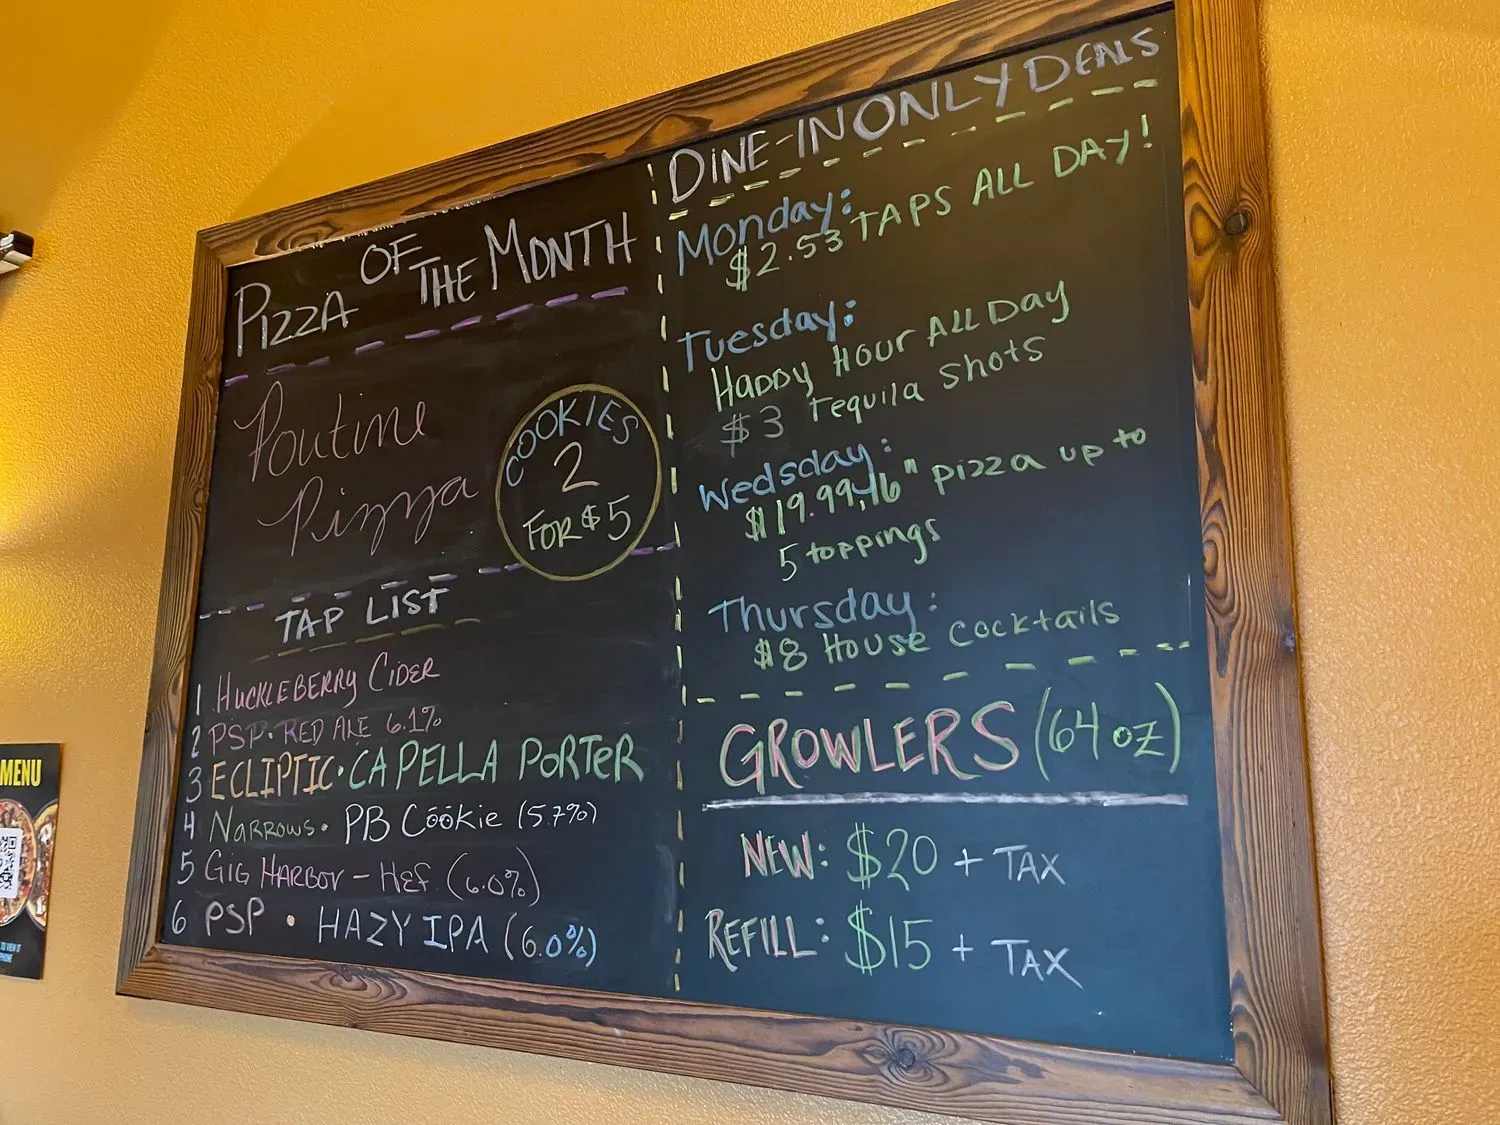 PIZZA OF THE MONTH
Poutine
Pizza
COOKIES
2
FOR $5
TAP LIST
1 HUCKLEBERRY CIDER
2 PSP • RED ALE 6.1%
3 ECLIPTIC • CAPELLA PORTER
4 NARROWS • PB COOKIE (5.7%)
5 GIG HARBOR - HEF. (6.0%)
6 PSP • HAZY IPA (6.0%)
DINE-IN ONLY DEALS
Monday:
$2.53 TAPS ALL DAY!
Tuesday:
Happy Hour All Day
$3 Tequila Shots
Wedsday:
$19.99, 16" pizza up to
5 toppings
Thursday:
$8 House Cocktails
GROWLERS (64 oz)
NEW: $20 + TAX
REFILL: $15 + TAX
MENU